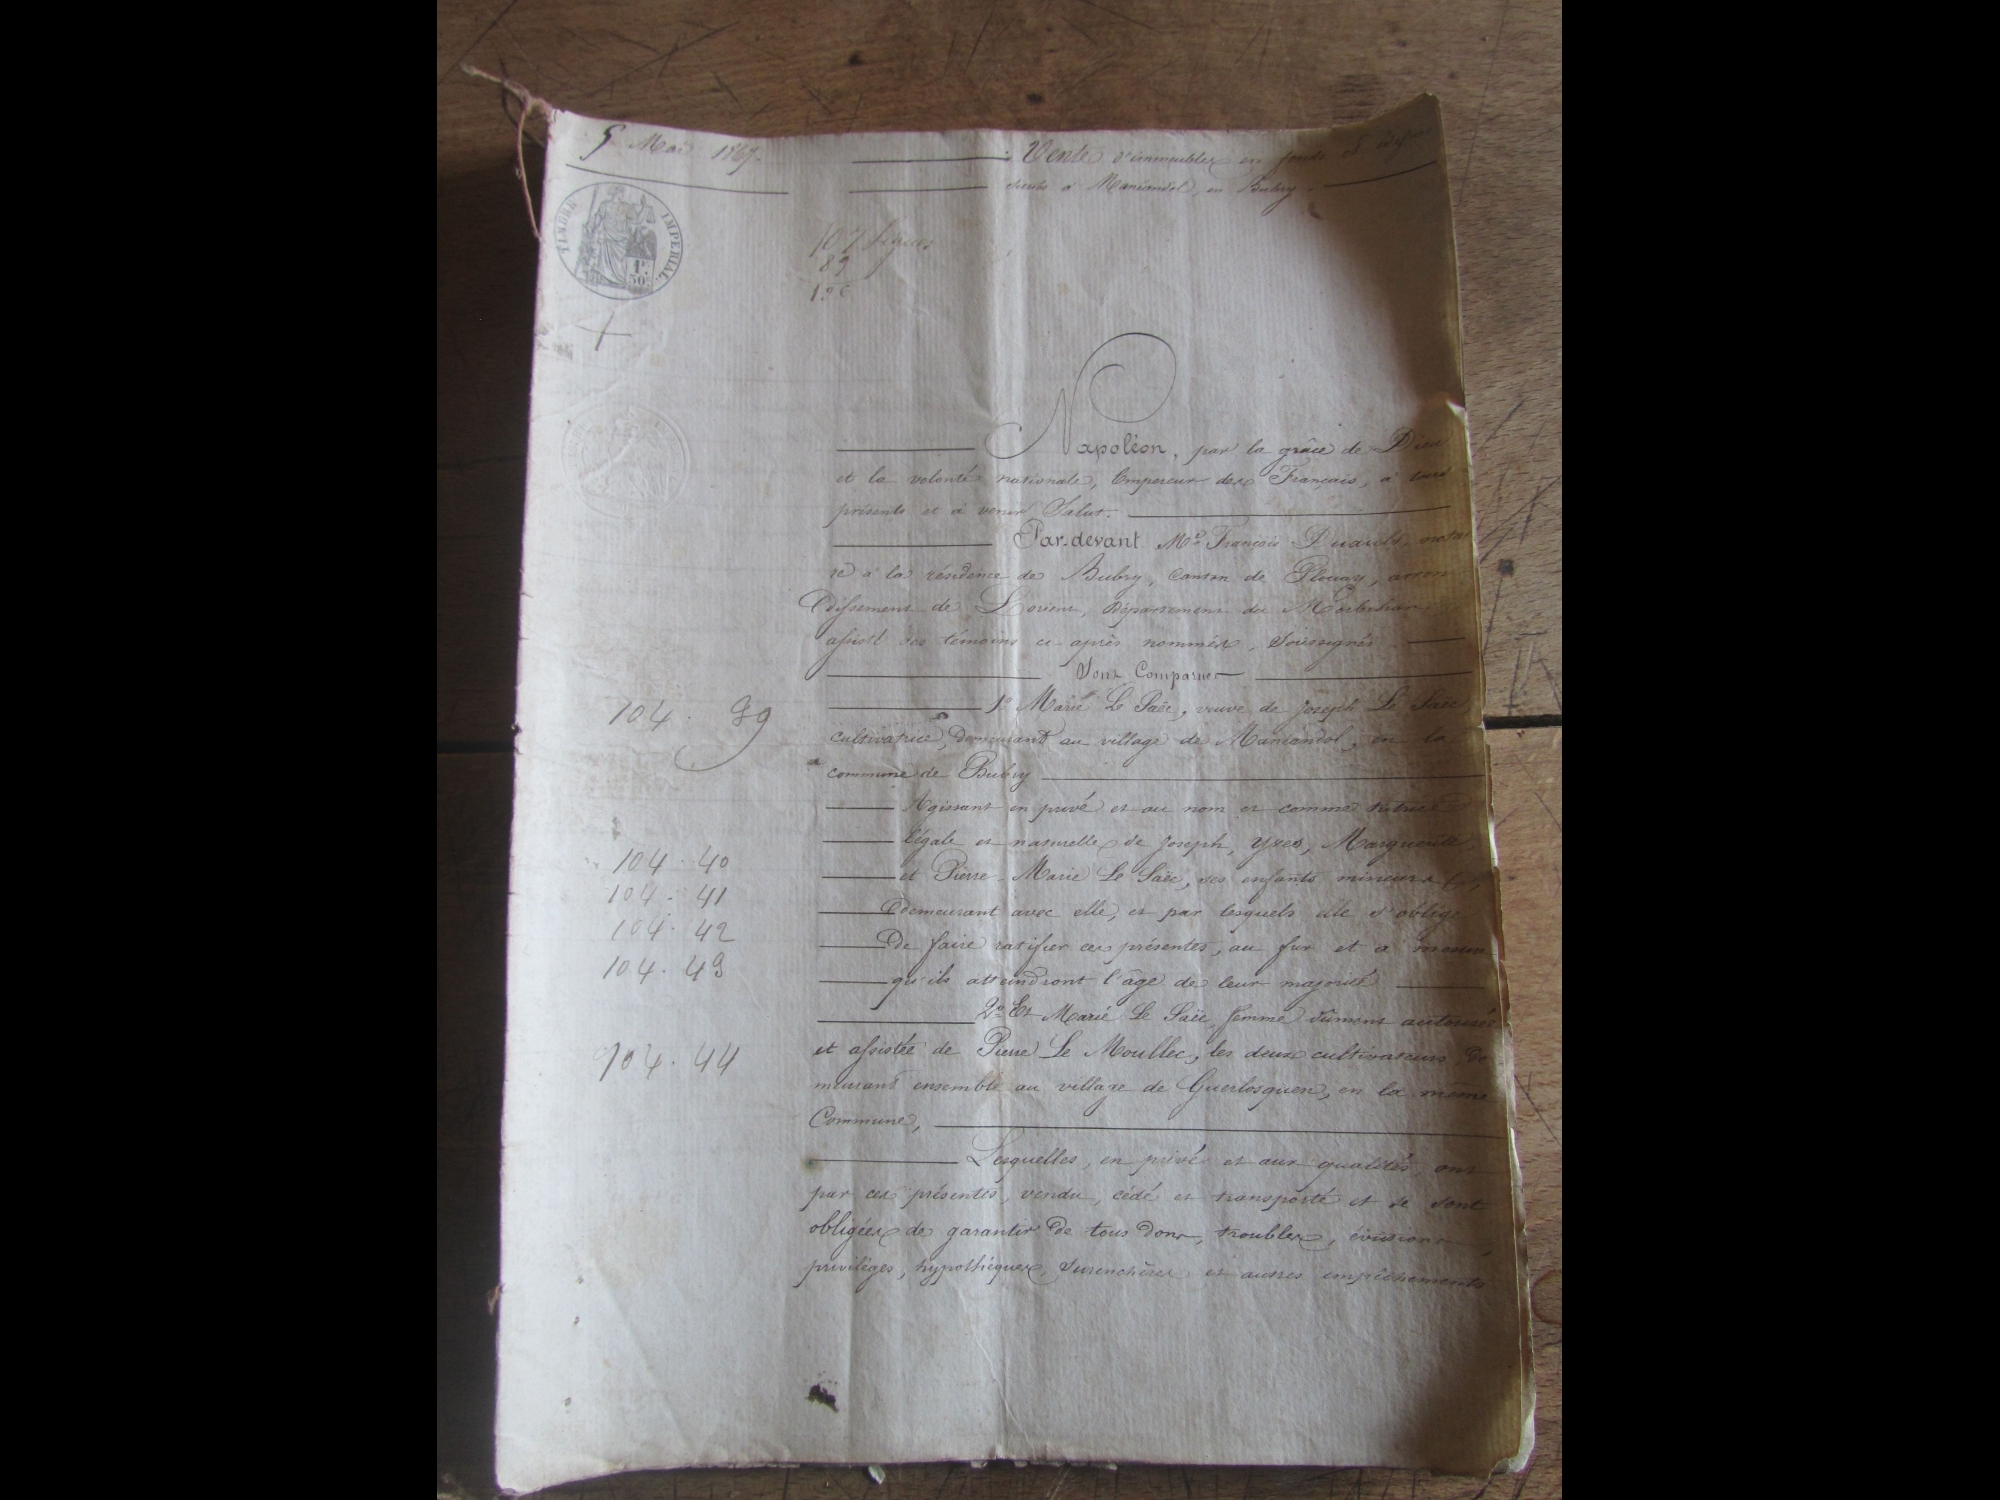 5 Mai 1867.
Vente d'immeubles en fonds et édifices
situés à Manéandol, en Bubry.
TIMBRE IMPERIAL.
1F.
50c
107 lignes
89
196
Napoléon, par la grâce de Dieu
et la volonté nationale, Empereur des Français, à tous
présents et à venir Salut.
Par-devant Me François Duault, notai
re à la résidence de Bubry, canton de Plouay, arron
dissement de Lorient, Département du Morbihan,
assisté des témoins ci-après nommés, Soussignés
Sont Comparues
1o Marie Le Saëc, veuve de Joseph Le Saëc
cultivatrice, demeurant au village de Manéandol, en la
commune de Bubry
104. 39
Agissant en privé et au nom et comme tutrice
légale et naturelle de Joseph, Yves, Marguerite
et Pierre-Marie Le Saëc, ses enfants mineurs
104. 40
demeurant avec elle, et par lesquels elle s'oblige
104. 41
de faire ratifier ces présentes, au fur et à mesure
104. 42
qu'ils atteindront l'âge de leur majorité
104. 43
2o Et Marie Le Saëc, femme dûment autorisée
et assistée de Pierre Le Moullec, les deux cultivateurs de
104. 44
meurant ensemble au village de Guerlosquen, en la même
Commune,
Lesquelles, en privé et aux qualités, ont
par ces présentes, vendu, cédé et transporté et se sont
obligées de garantir de tous dons, troubles, évictions,
privilèges, hypothèques, surenchères et autres empêchements